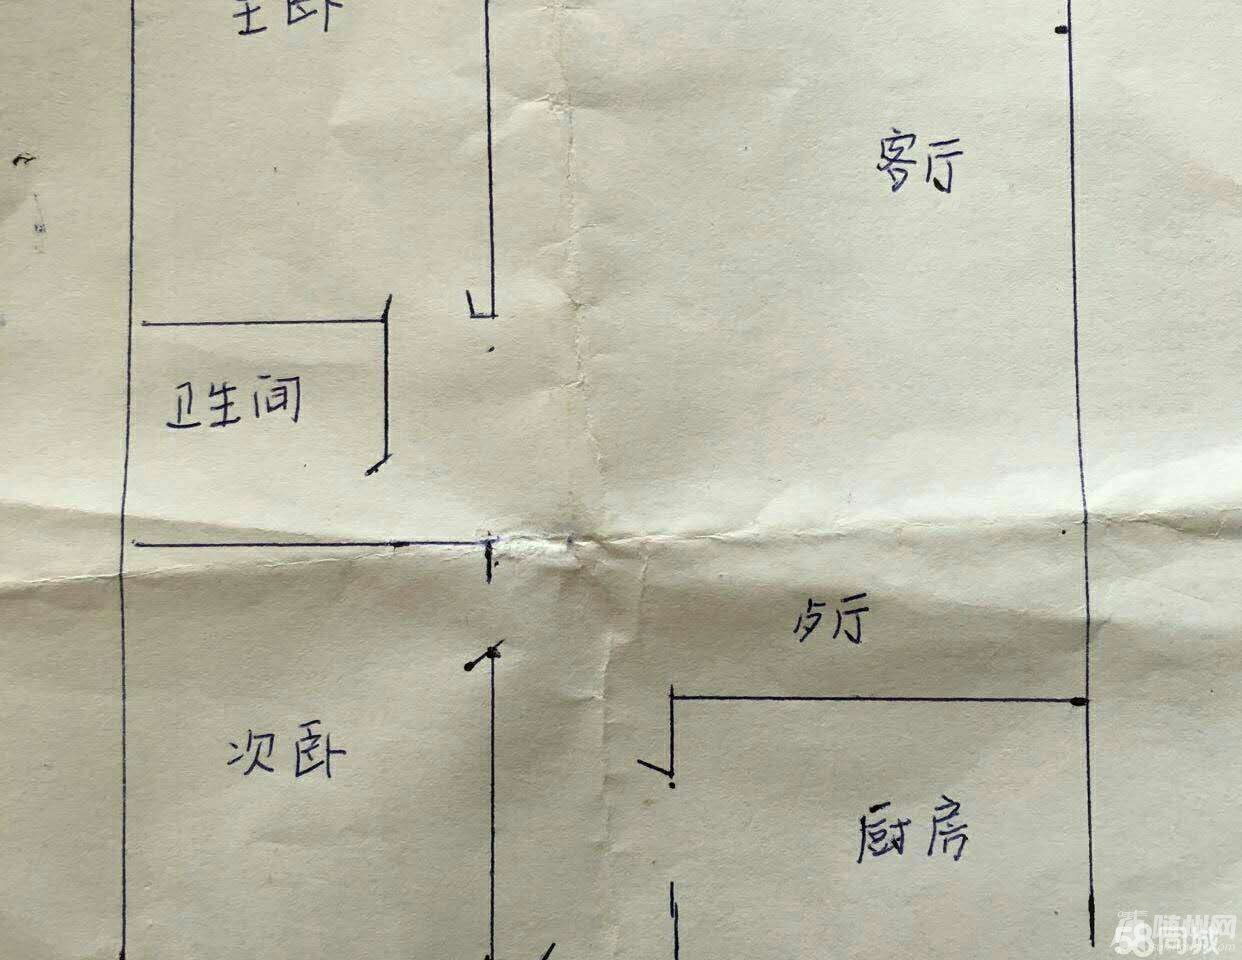 主卧
客厅
卫生间
歺厅
次卧
厨房
随州网
58同城